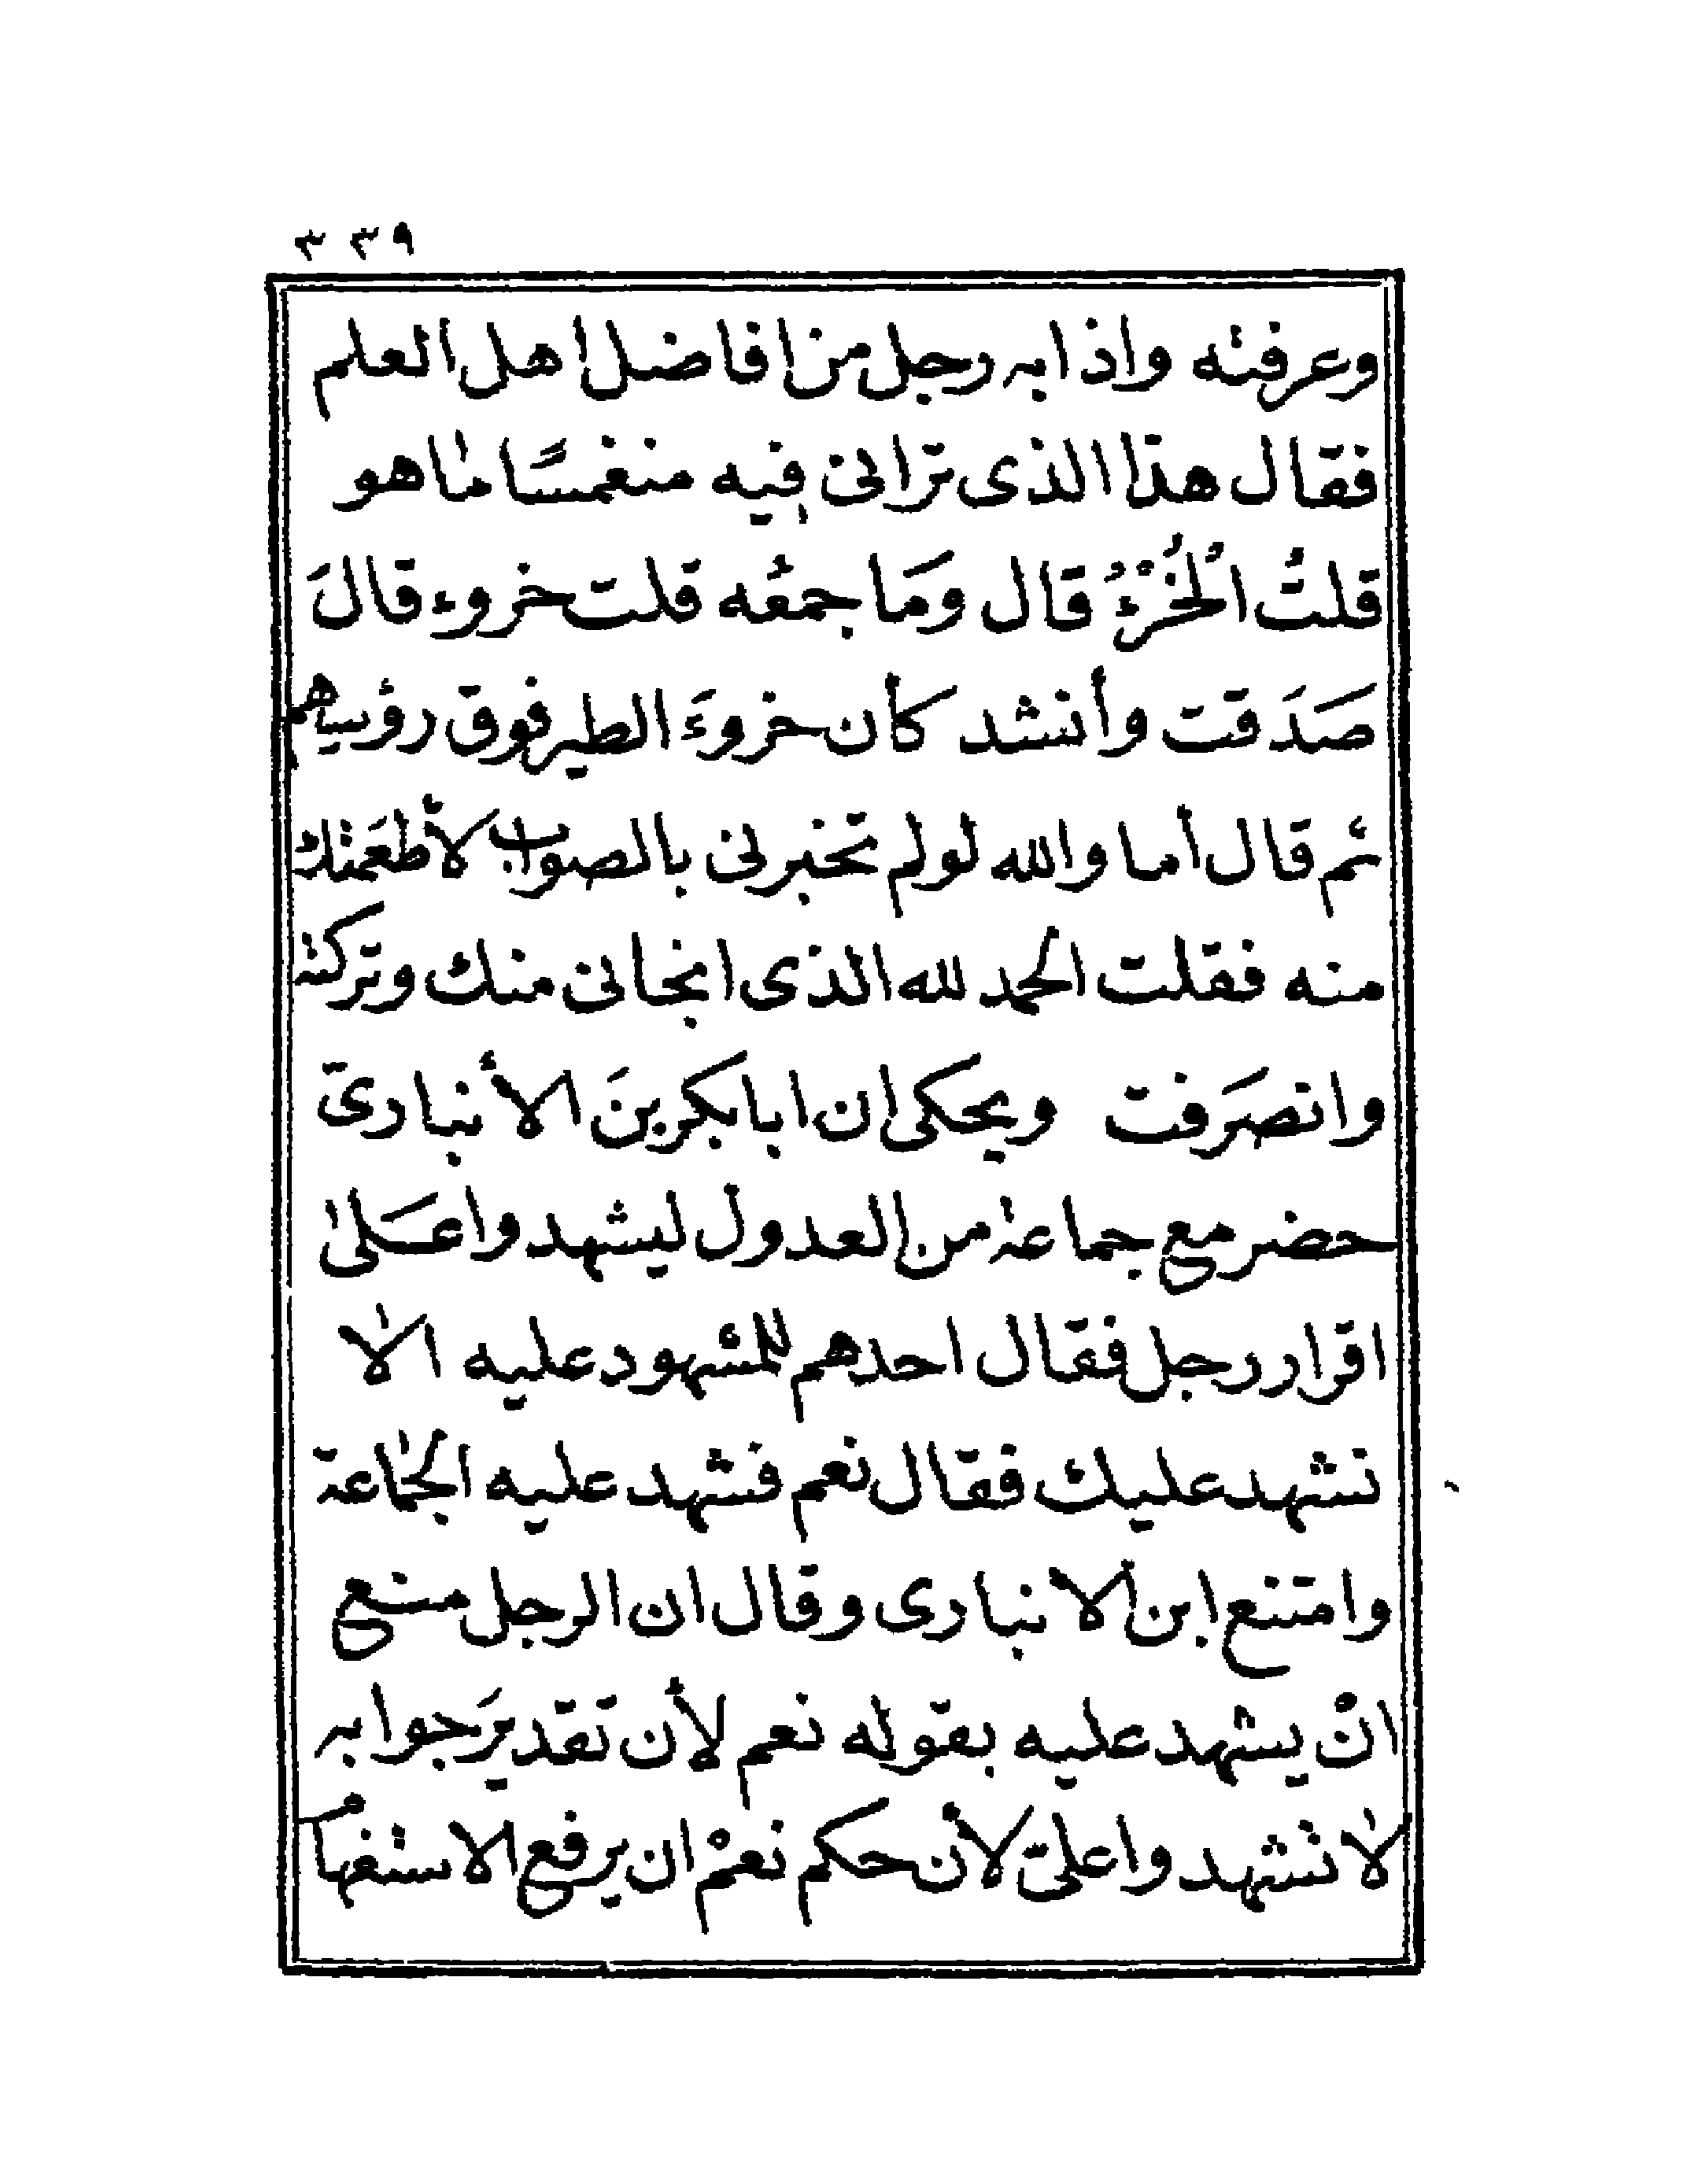 ٣٣٩
وعرفته واذا به رجل من افاضل اهل العلم
فقال هذا الذى ترانى فيه منغمسًا ما هو
قلتُ الخُرْءُ قال ومَا جمعُه قلت خروء قالَ
صَدَقت وأنشد كأن خروءَ الطير فوق رؤسهم
ثم قال أما والله لو لم تخبرنى بالصواب لأطعَمتك
منه فقلت الحمد لله الذى انجانى منك وتركته
وانصَرَفت ويحكى ان ابا بكر بنَ الأنبارىّ
حضر مع جماعة من العدول ليشهدوا عَلى
اقرار رجل فقال احدهم للمشهود عليه الا
نشهد عليك فقال نعم فشهد عليه الجماعة
وامتنع ابن الانبارى وقال ان الرجل منع
انْ يشهد عليه بقوله نعم لأن تقديرَ جوابه
لا تشهدوا علىّ لأن حكم نعمْ ان يرفع الاستفهاُ